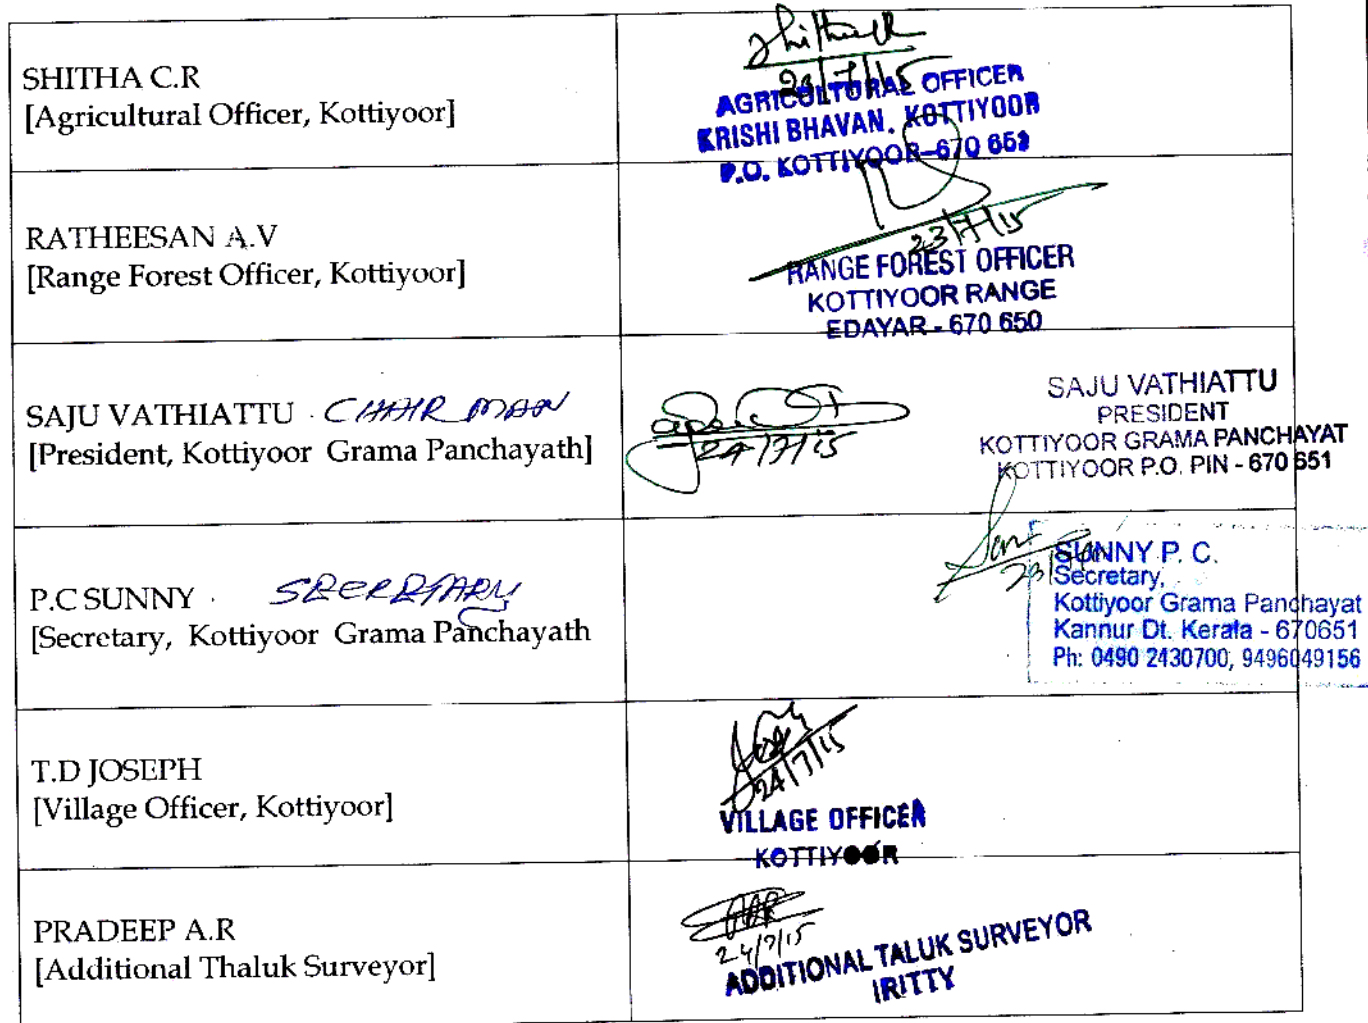 SHITHA C.R
[Agricultural Officer, Kottiyoor]
23/7/15
AGRICULTURAL OFFICER
KRISHI BHAVAN. KOTTIYOOR
P.O. KOTTIYOOR-670 651
RATHEESAN A.V
[Range Forest Officer, Kottiyoor]
23/7/15
RANGE FOREST OFFICER
KOTTIYOOR RANGE
EDAYAR - 670 650
SAJU VATHIATTU CHAIRMAN
[President, Kottiyoor Grama Panchayath]
24/7/15
SAJU VATHIATTU
PRESIDENT
KOTTIYOOR GRAMA PANCHAYAT
KOTTIYOOR P.O. PIN - 670 651
P.C SUNNY SECRETARY
[Secretary, Kottiyoor Grama Panchayath
SUNNY P. C.
Secretary,
Kottiyoor Grama Panchayat
Kannur Dt. Kerala - 670651
Ph: 0490 2430700, 9496049156
T.D JOSEPH
[Village Officer, Kottiyoor]
24/7/15
VILLAGE OFFICER
KOTTIYOOR
PRADEEP A.R
[Additional Thaluk Surveyor]
24/7/15
ADDITIONAL TALUK SURVEYOR
IRITTY